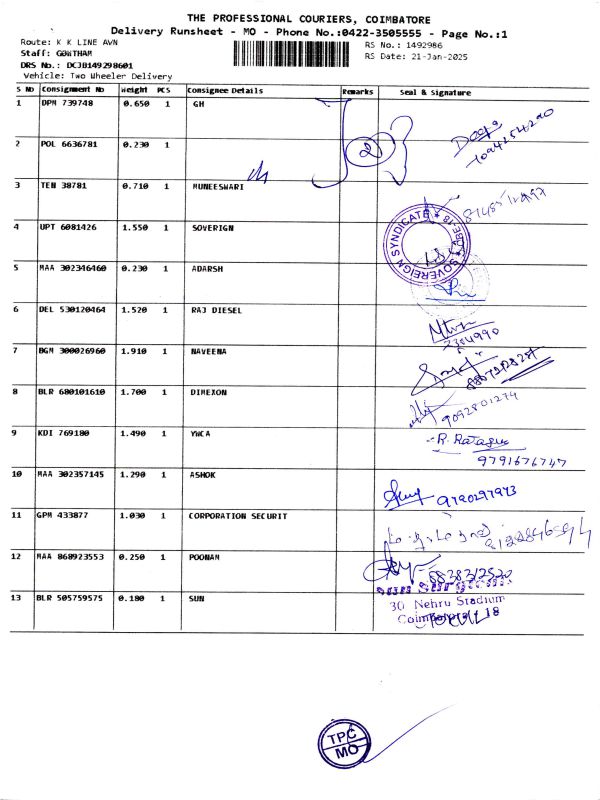 THE PROFESSIONAL COURIERS, COIMBATORE
Delivery Runsheet - MO - Phone No.:0422-3505555 - Page No.:1
Route: K K LINE AVN
RS No.: 1492986
Staff: GOWTHAM
RS Date: 21-Jan-2025
DRS No.: DCJB149298601
Vehicle: Two Wheeler Delivery
S No Consignment No Weight PCS Consignee Details Remarks Seal & Signature
1 DPM 739748 0.650 1 GH
2 POL 6636781 0.230 1 2
3 TEN 38781 0.710 1 MUNEESWARI
4 UPT 6081426 1.550 1 SOVERIGN
SOVEREIGN SYNDICATE * CBE-18 *
5 MAA 302346460 0.230 1 ADARSH
6 DEL 530120464 1.520 1 RAJ DIESEL
7 BGM 300026960 1.910 1 NAVEENA
8 BLR 680101610 1.700 1 DIMEXON
9092801274
9 KDI 769180 1.490 1 YWCA
9791676747
10 MAA 302357145 1.290 1 ASHOK
9790297973
11 GPM 433877 1.030 1 CORPORATION SECURIT
12 MAA 868923553 0.250 1 POONAM
13 BLR 505759575 0.180 1 SUN
30 Nehru Stadium
Coimbatore - 18
TPC
MO